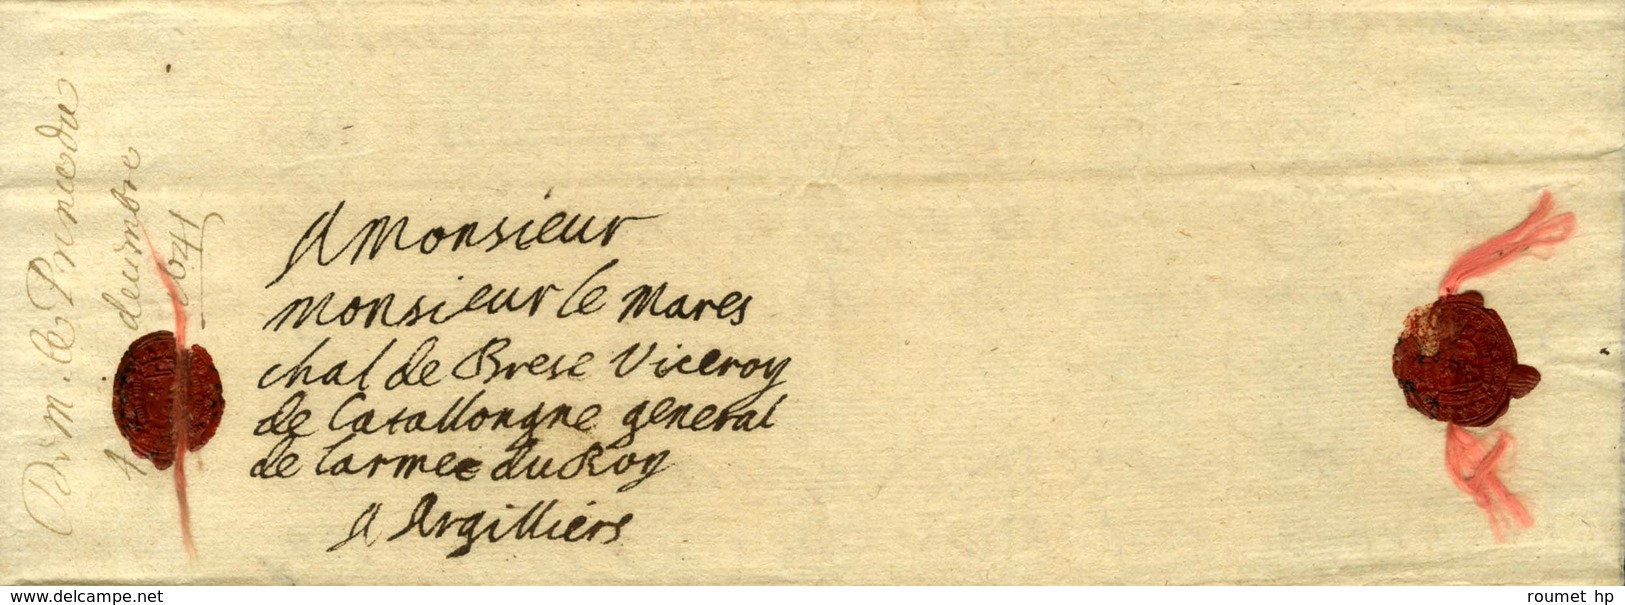 A Monsieur
Monsieur le Mares
chal de Brese Viceroy
de Catallongne general
de larmee du Roy
A Argilliers
De M. le Prince du
4 decembre
1641
www.delcampe.net
roumet hp